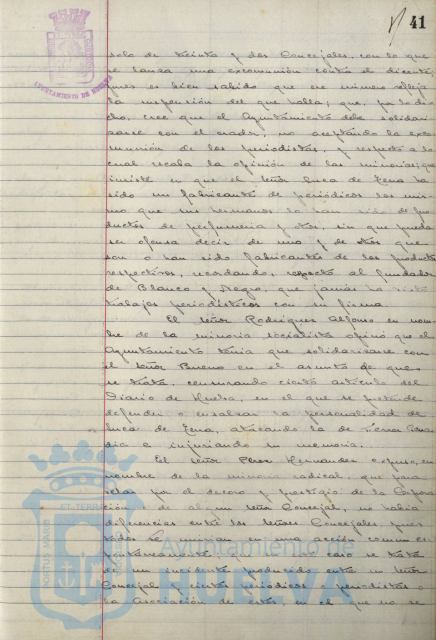 41
AYUNTAMIENTO DE HUELVA
solo de treinta y dos Concejales, con lo que
se lanza una excomunión contra el dicente,
pues es bien sabido que ese número refleja
la inspersión del que habla; que, por lo di-
cho, cree que el Ayuntamiento debe solidari
zarse con el orador, no aceptando la exco
munión de los periodistas, y respecto a lo
cual recaba la opinión de las minorías; que
insiste en que el Señor Luca de Tena ha
sido un fabricante de periódicos lo mis-
mo que sus hermanos lo han sido de pro
ductos de perfumería y otros, sin que pueda
ser ofensa decir de uno y de otros que
son o han sido fabricantes de los productos
respectivos, recordando, respecto al fundador
de Blanco y Negro, que jamás ha visto
trabajos periodísticos con su firma.
El Señor Rodríguez Alfonso en nom
bre de la minoría socialista opinó que el
Ayuntamiento tenía que solidarizarse con
el Señor Bueno en el asunto de que
se trata, censurando cierto artículo del
Diario de Huelva, en el que se pretende
defender o ensalzar la personalidad de
Luca de Tena, atacando la de
día e injuriando su memoria.
El Señor Pérez Hernández expuso, en
nombre de la minoría radical, que para
velar por el decoro y prestigio de la Corpora
ción de algún Señor Concejal, no había
diferencias entre los Señores Concejales pues
todos se unirían en una acción común
caso se trata
de un incidente producido entre un Señor
Concejal y ciertos periódicos o periodistas o
la Asociación de estos, en el que no se
PORTUS MARIS ET TERRAE
Ayuntamiento de
HUELVA